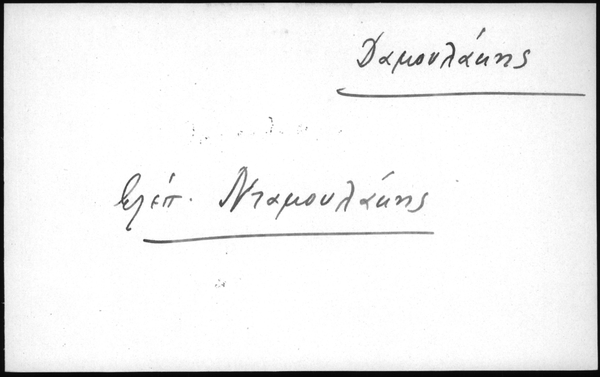 Δαμουλάκης
βλέπ. Νταμουλάκης